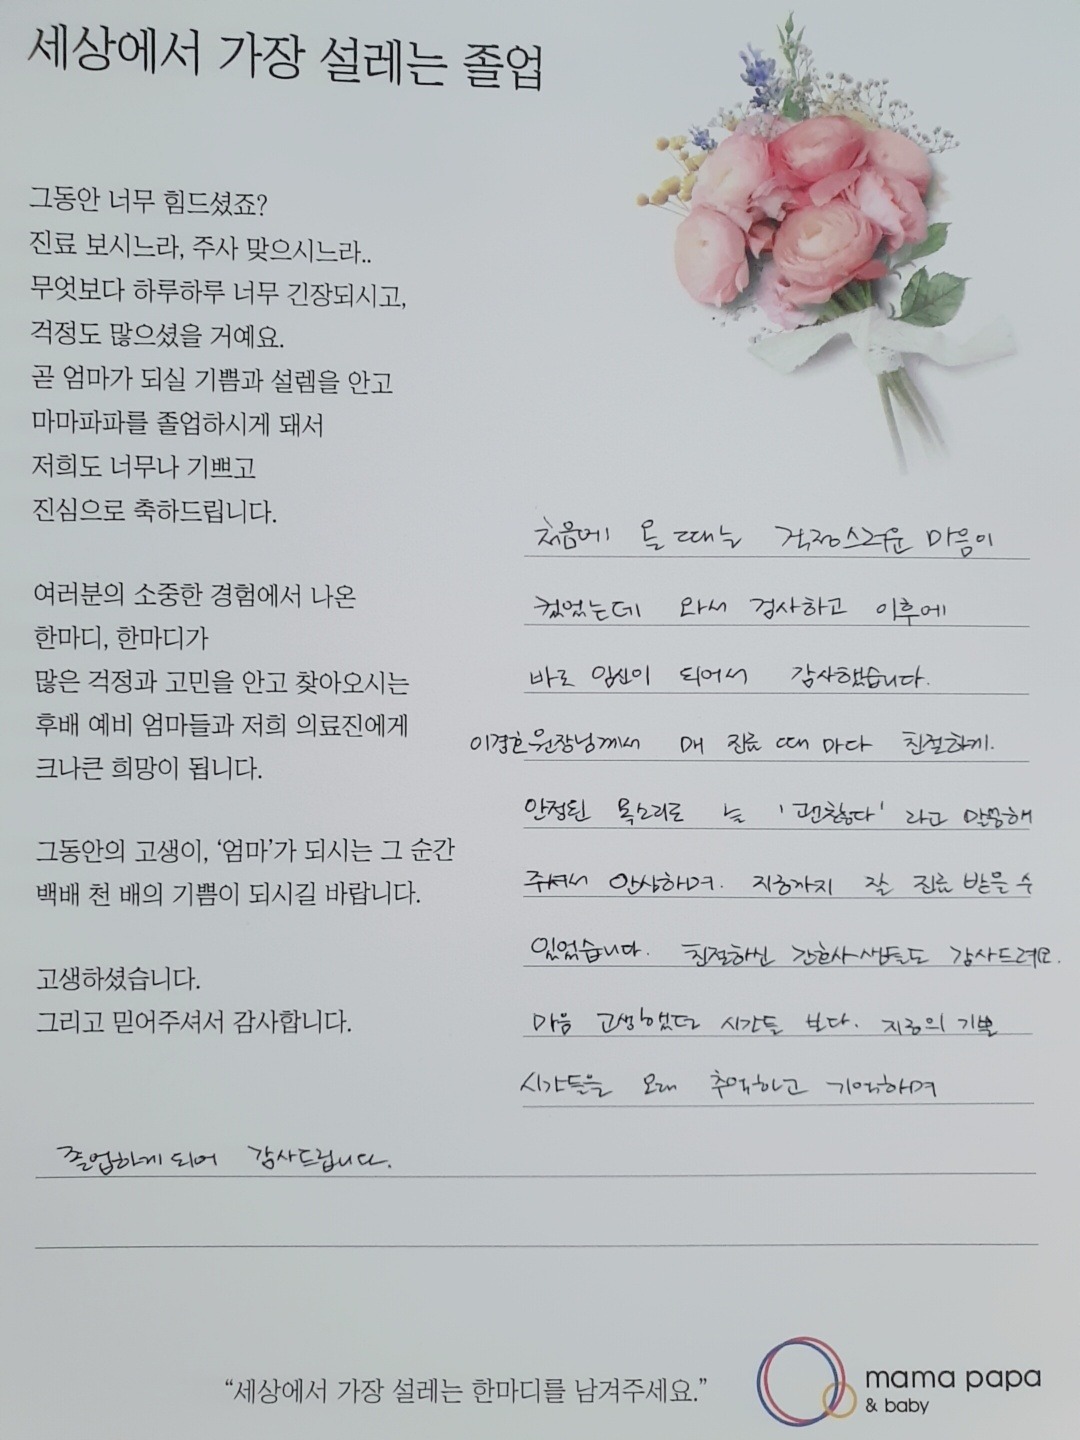 세상에서 가장 설레는 졸업
그동안 너무 힘드셨죠?
진료 보시느라, 주사 맞으시느라..
무엇보다 하루하루 너무 긴장되시고,
걱정도 많으셨을 거예요.
곧 엄마가 되실 기쁨과 설렘을 안고
마마파파를 졸업하시게 돼서
저희도 너무나 기쁘고
진심으로 축하드립니다.
여러분의 소중한 경험에서 나온
한마디, 한마디가
많은 걱정과 고민을 안고 찾아오시는
후배 예비 엄마들과 저희 의료진에게
크나큰 희망이 됩니다.
그동안의 고생이, ‘엄마’가 되시는 그 순간
백배 천 배의 기쁨이 되시길 바랍니다.
고생하셨습니다.
그리고 믿어주셔서 감사합니다.
처음에 올 때는 걱정스러운 마음이
컸었는데 와서 검사하고 이후에
바로 임신이 되어서 감사했습니다.
이경호원장님께서 매 진료 때 마다 친절하게.
안정된 목소리로 늘 '괜찮다' 라고 말씀해
주셔서 안심하며. 지금까지 잘 진료 받을 수
있었습니다. 친절하신 간호사쌤들도 감사드려요.
마음 고생했던 시간들 보다. 지금의 기쁜
시간들을 오래 추억하고 기억하며
졸업하게 되어 감사드립니다.
“세상에서 가장 설레는 한마디를 남겨주세요.”
mama papa
& baby